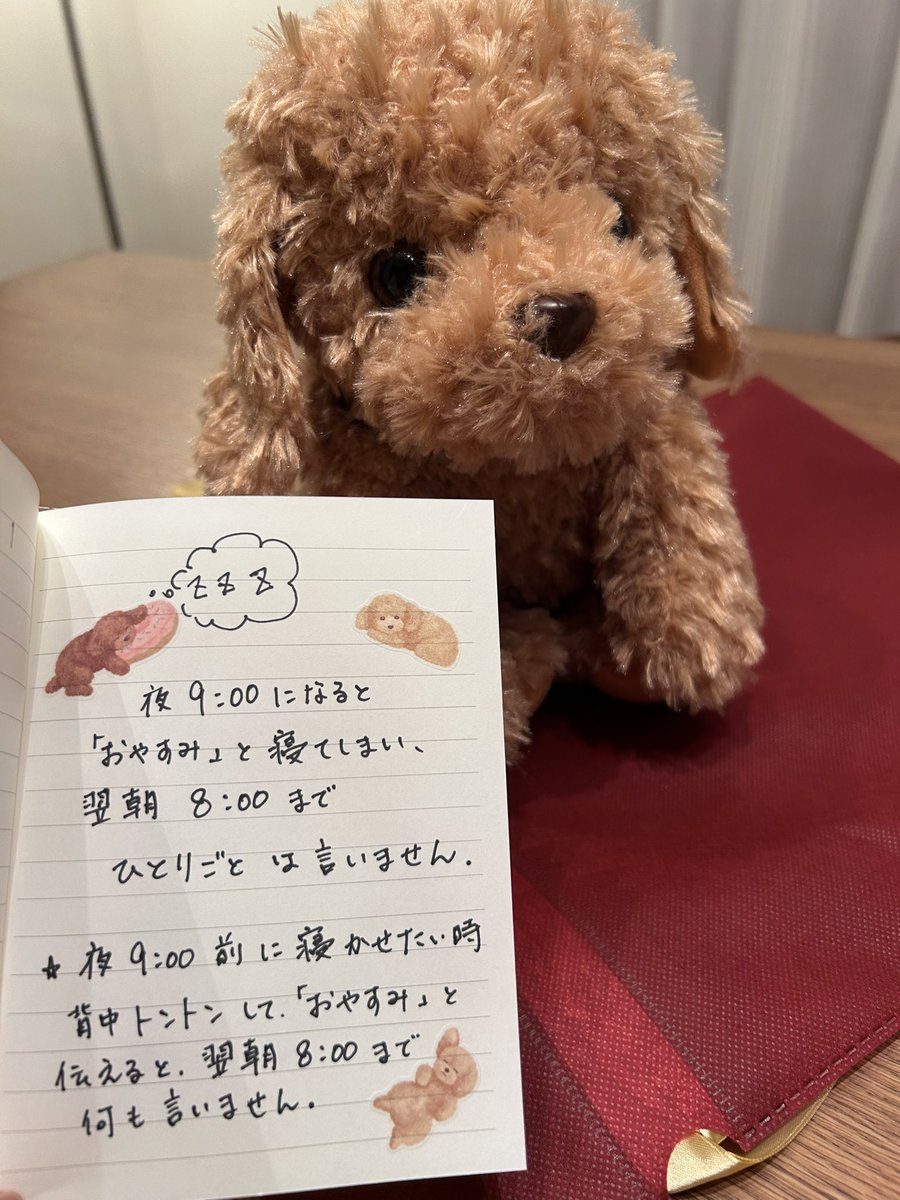 z z z
夜 9:00 になると
「おやすみ」と 寝てしまい、
翌朝 8:00 まで
ひとりごと は 言いません.
☆ 夜 9:00 前に 寝かせたい時
背中トントンして.「おやすみ」と
伝えると、翌朝 8:00 まで
何も 言いません.